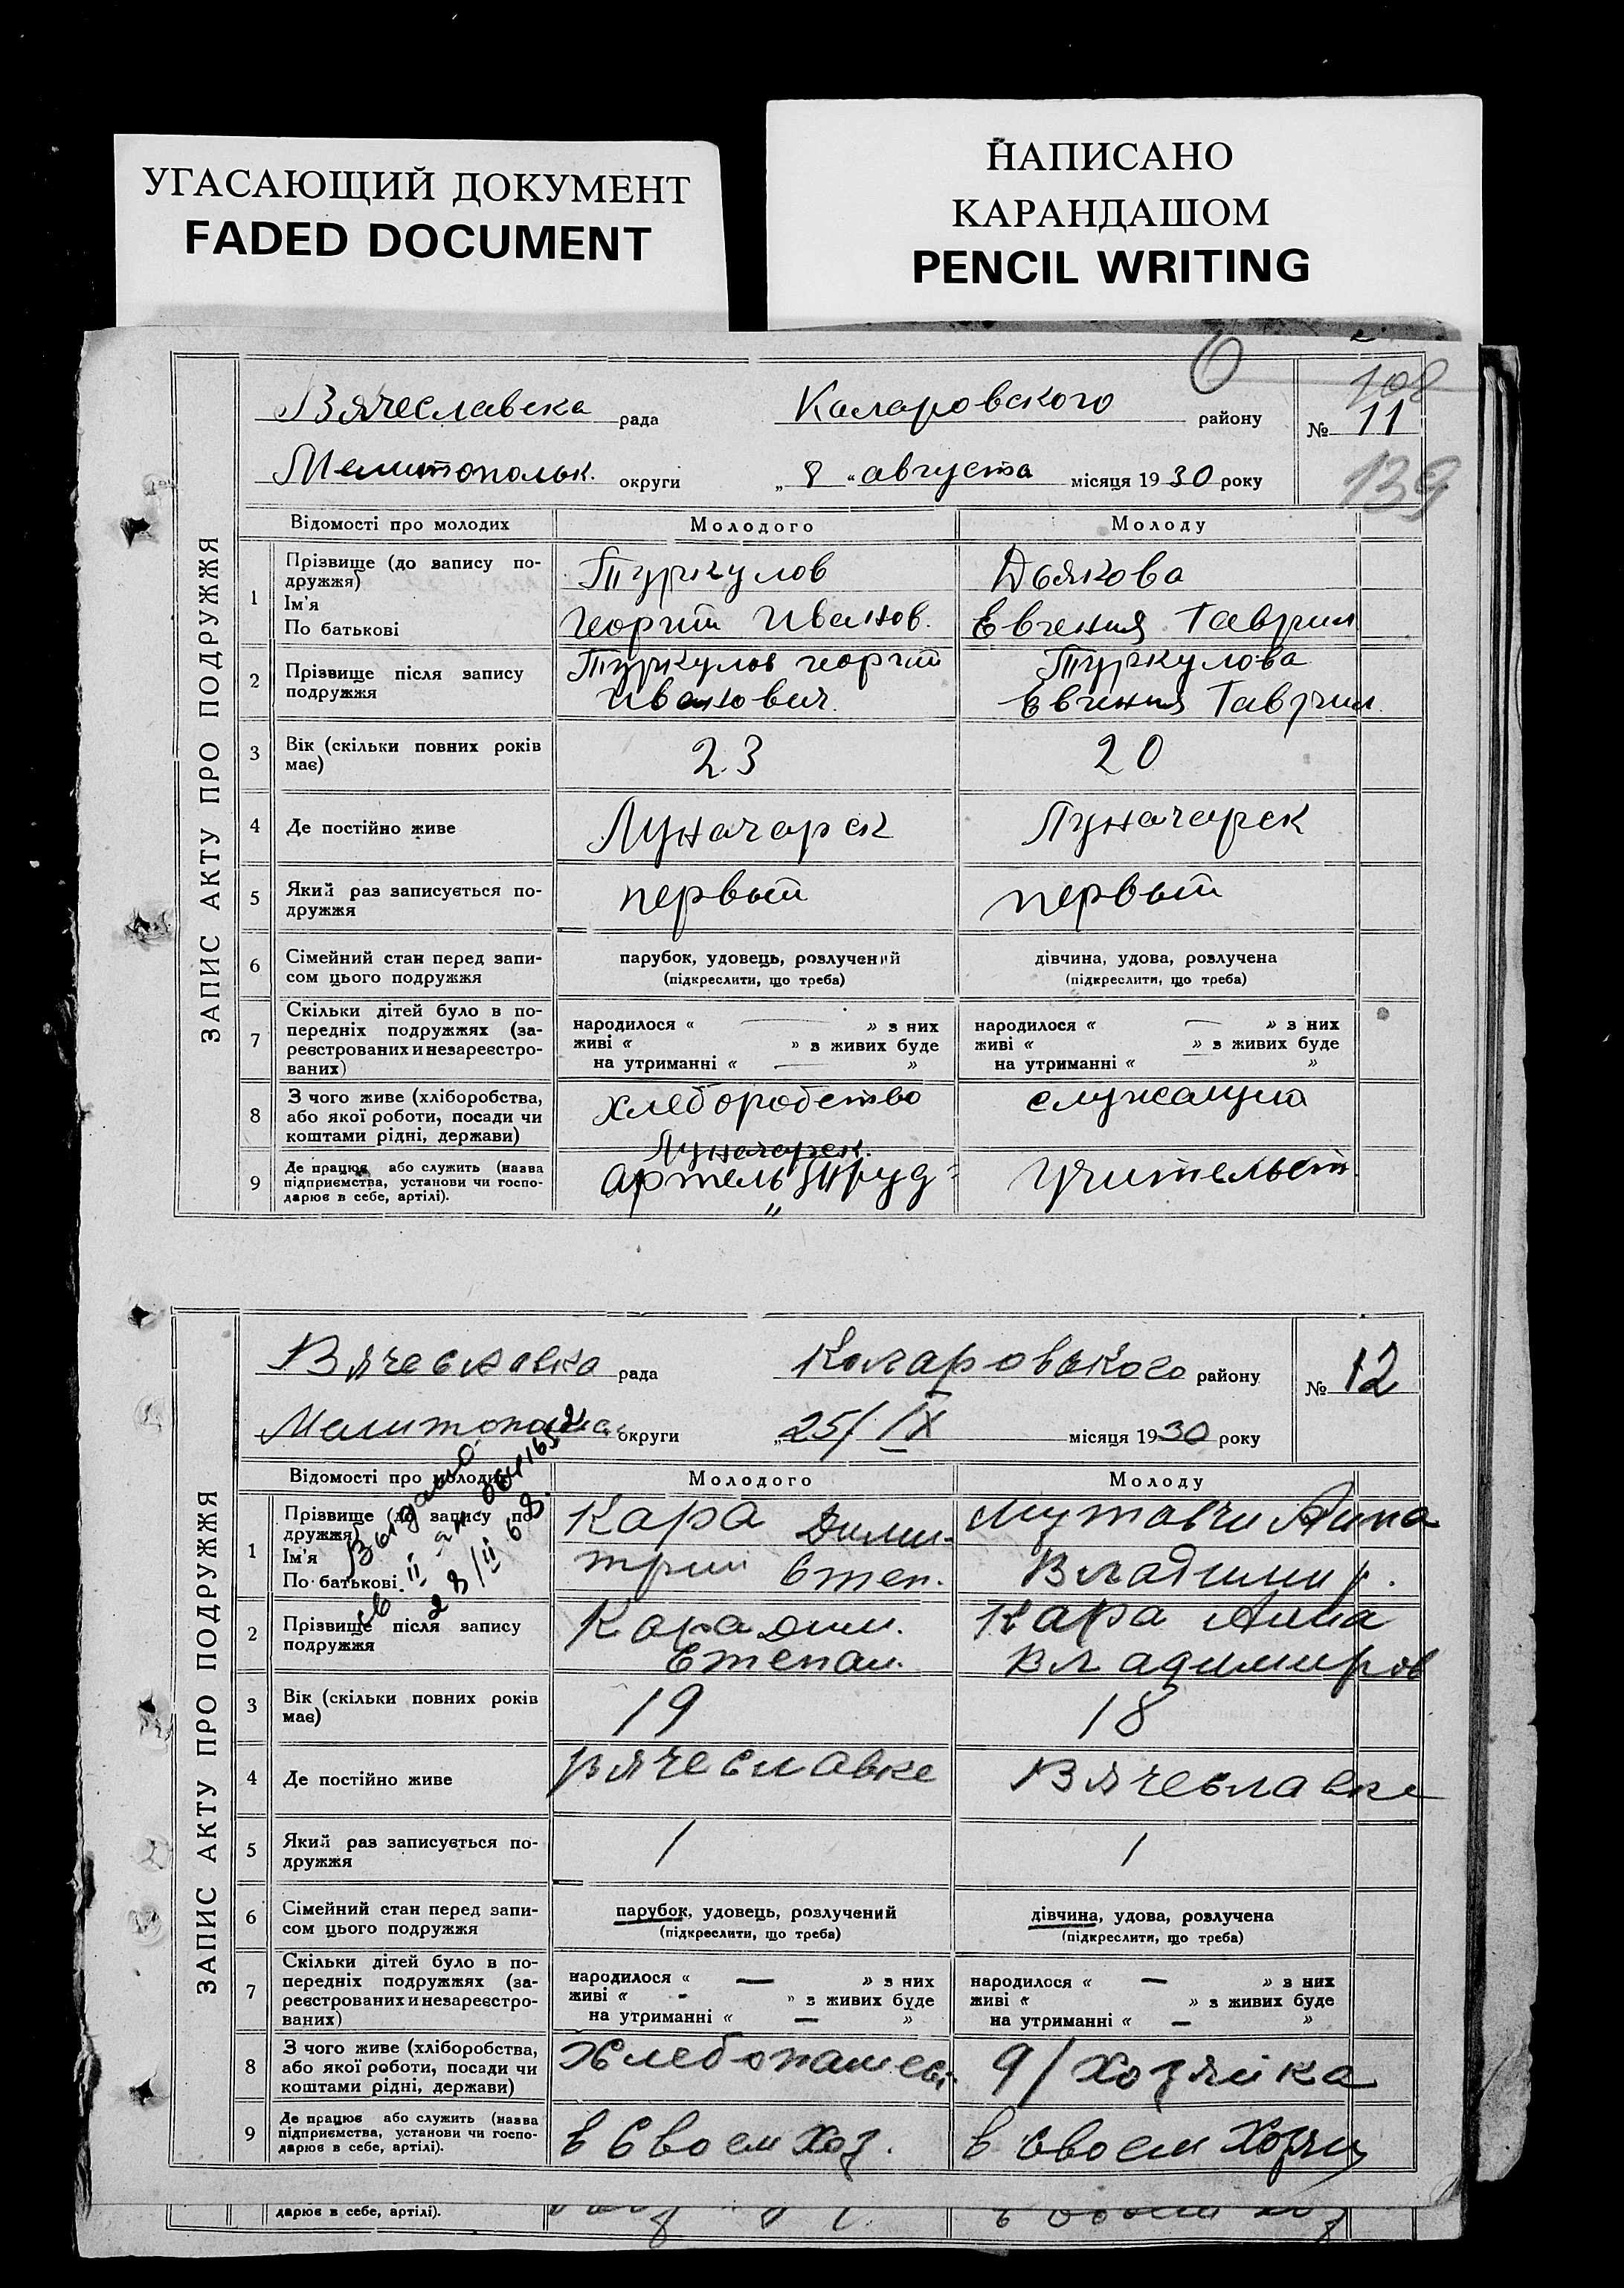 УГАСАЮЩИЙ ДОКУМЕНТ
FADED DOCUMENT
НАПИСАНО
КАРАНДАШОМ
PENCIL WRITING
6
108
139
ЗАПИС АКТУ ПРО ПОДРУЖЖЯ
Вячеславска рада Каларовского району № 11
Мелитопольк. округи „ 8 “ августа місяця 1930 року
Відомості про молодих Молодого Молоду
1 Прізвище (до запису по-
дружжя)
Ім'я
По батькові
Туркулов
Георгий Иванов.
Дьякова
Евгения Гаврил
2 Прізвище після запису
подружжя
Туркулов Георгий
Иванович.
Туркулова
Евгения Гаврил.
3 Вік (скільки повних років
має)
23
20
4 Де постійно живе
Луначарск
Луначарск
5 Який раз записується по-
дружжя
первый
первый
6 Сімейний стан перед запи-
сом цього подружжя
парубок, удовець, розлучений
(підкреслити, що треба)
дівчина, удова, розлучена
(підкреслити, що треба)
7 Скільки дітей було в по-
передніх подружжях (за-
реєстрованих и незареєстро-
ваних)
народилося « — » з них
живі « » з живих буде
на утриманні « — »
народилося « — » з них
живі « » з живих буде
на утриманні « »
8 З чого живе (хліборобства,
або якої роботи, посади чи
коштами рідні, держави)
хлеборобство
служащая
9 Де працює або служить (назва
підприємства, установи чи госпо-
дарює в себе, артілі).
Луначарск.
артель „Труд"
Учительст.
ЗАПИС АКТУ ПРО ПОДРУЖЖЯ
Вячеславка рада Коларовского району № 12
округи „25/IX місяця 1930 року
Выдано
28/II 68.
Відомості про молодих Молодого Молоду
1 Прізвище (до запису по-
дружжя)
Ім'я
По батькові
Кара Дими-
трий Степ.
Мутавчи Анна
Владимир.
2 Прізвище після запису
подружжя
Кара Дим.
Степан.
Кара Анна
Владимиров
3 Вік (скільки повних років
має)
19
18
4 Де постійно живе
Вячеславке
Вячеславке
5 Який раз записується по-
дружжя
1
1
6 Сімейний стан перед запи-
сом цього подружжя
парубок, удовець, розлучений
(підкреслити, що треба)
дівчина, удова, розлучена
(підкреслити, що треба)
7 Скільки дітей було в по-
передніх подружжях (за-
реєстрованих и незареєстро-
ваних)
народилося « — » з них
живі « - » з живих буде
на утриманні « — »
народилося « — » з них
живі « » з живих буде
на утриманні « — »
8 З чого живе (хліборобства,
або якої роботи, посади чи
коштами рідні, держави)
Хлебопашест.
д/хозяйка
9 Де працює або служить (назва
підприємства, установи чи госпо-
дарює в себе, артілі).
в своем хоз.
в своем
дарює в себе, артілі).